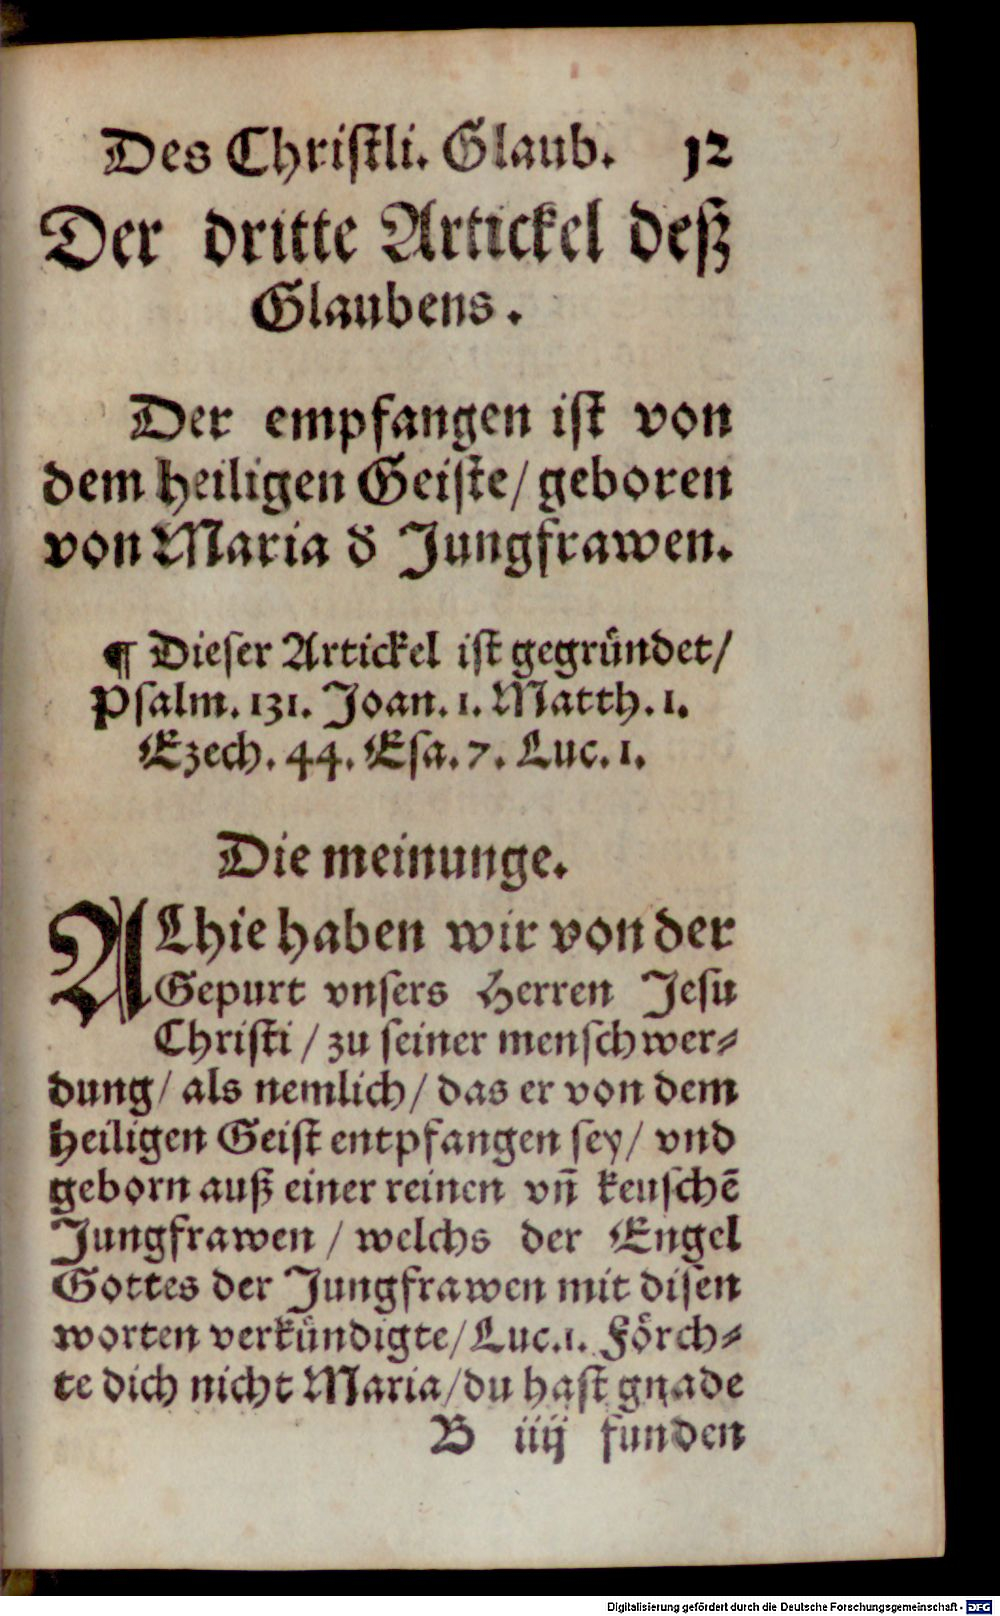 Des Christli. Glaub. 12
Der dritte Artickel deß
Glaubens.
Der empfangen ist von
dem heiligen Geiste/ geboren
von Maria d Jungfrawen.
¶ Dieser Artickel ist gegründet/
Psalm. 131. Joan. 1. Matth. 1.
Ezech. 44. Esa. 7. Luc. 1.
Die meinunge.
ALhie haben wir von der
Gepurt vnsers Herren Jesu
Christi / zu seiner menschwer-
dung/ als nemlich/ das er von dem
heiligen Geist entpfangen sey/ vnd
geborn auß einer reinen vñ keuschẽ
Jungfrawen / welchs der Engel
Gottes der Jungfrawen mit disen
worten verkündigte/ Luc. 1. Förch-
te dich nicht Maria/ du hast gnade
B iiij funden
Digitalisierung gefördert durch die Deutsche Forschungsgemeinschaft - DFG